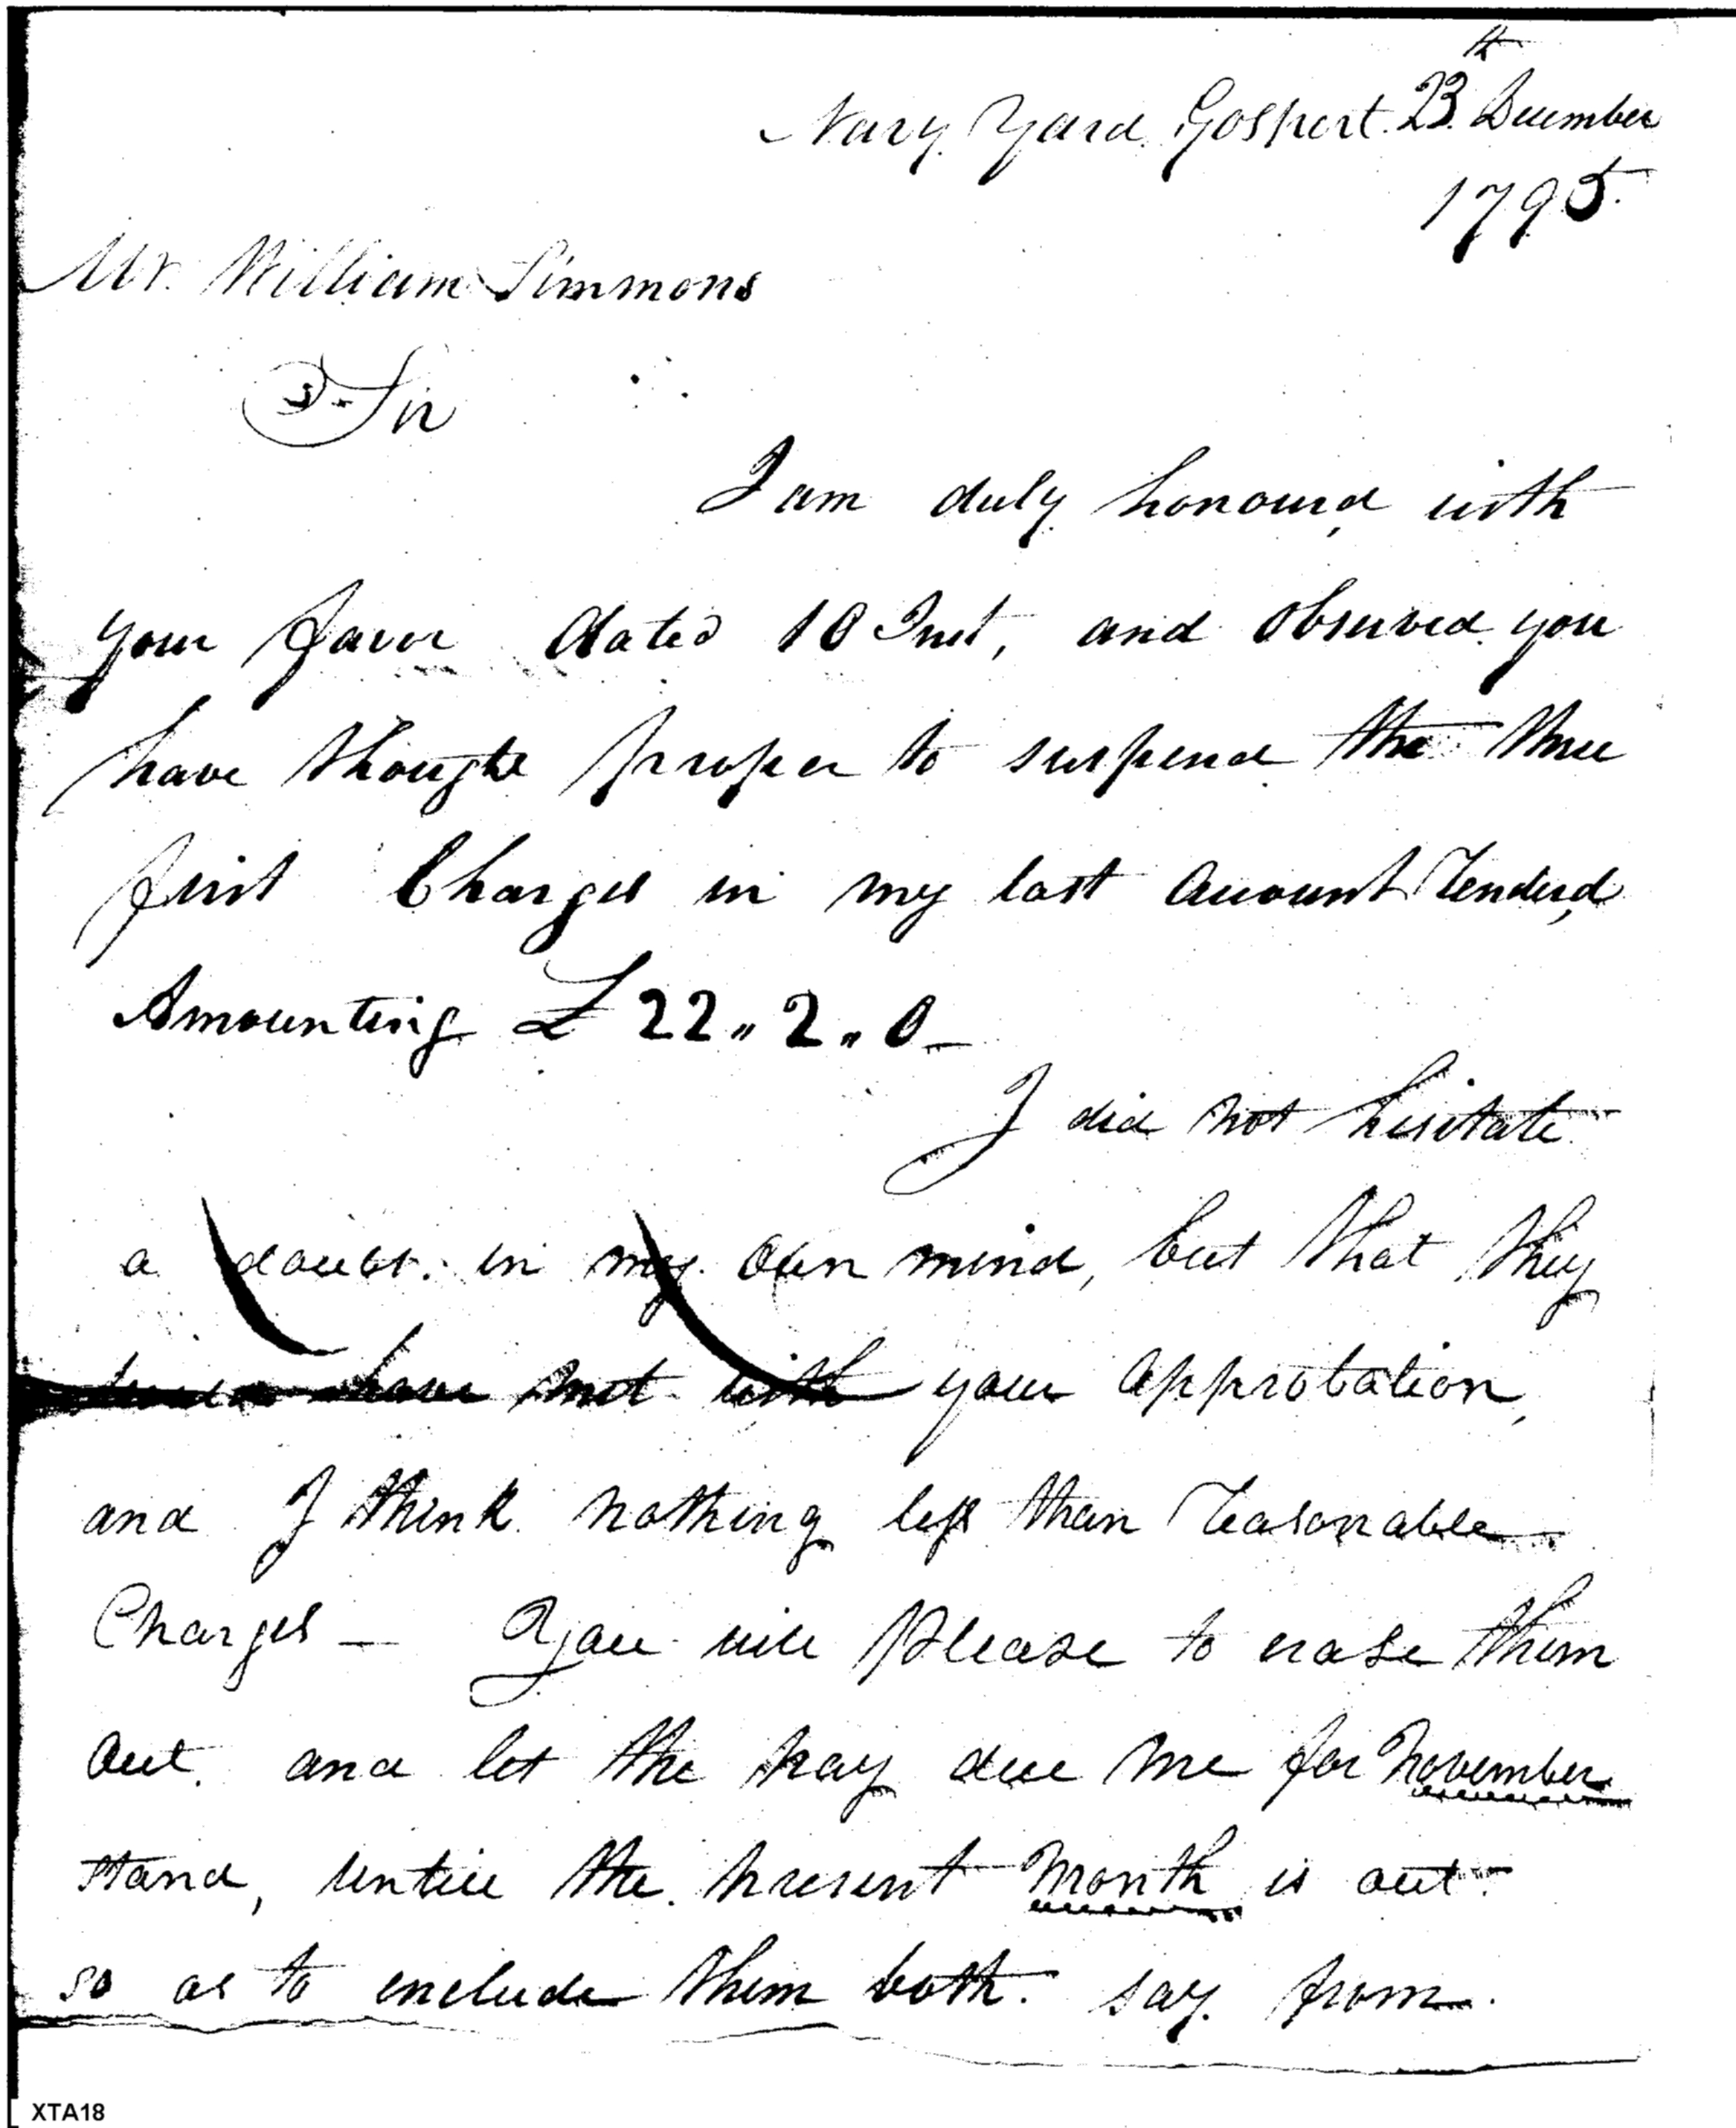 Navy Yard Gosport 23th December
1795.
Mr. William Simmons
Sir
I am duly honourd with
your favor dated 10 Inst, and observed you
have thought proper to suspend the three
first Charges in my last account renderd
Amounting £ 22 " 2 " 0
I did not hesitate
a doubt in my own mind, but that they
have met with your approbation,
and I think nothing less than reasonable
Charges — You will please to erase them
out. and let the pay due me for November
stand, untill the present Month is out
so as to include them both. say from
XTA18